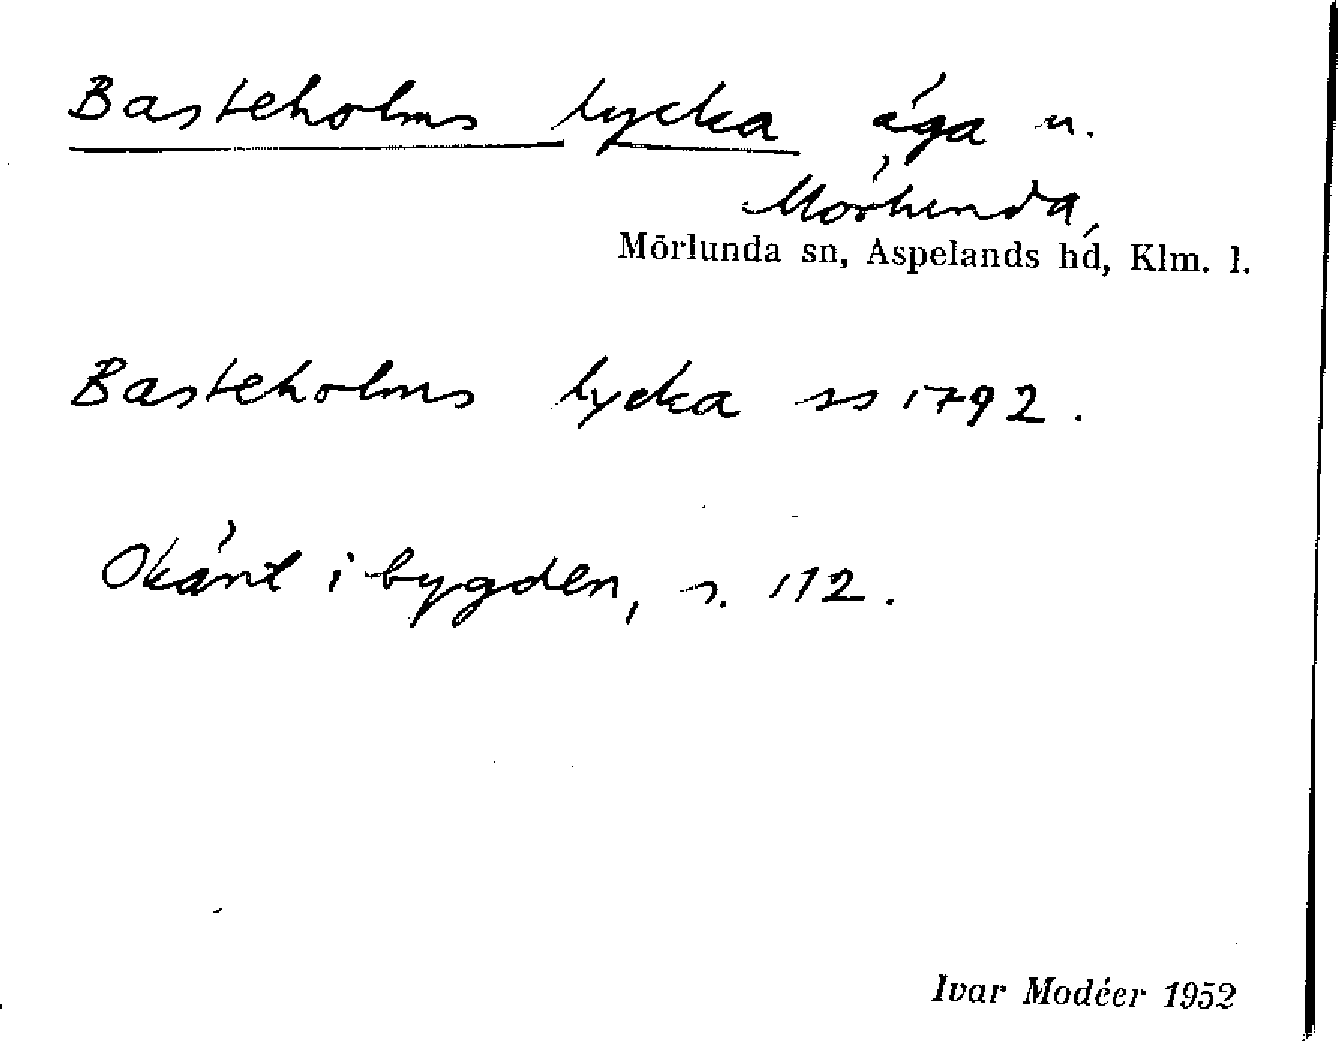 Basteholms lycka äga u.
Mörlunda,
Mörlunda sn, Aspelands hd, Klm. l.
Basteholms lycka ss 1792.
Okänt i bygden, s. 112.
Ivar Modéer 1952